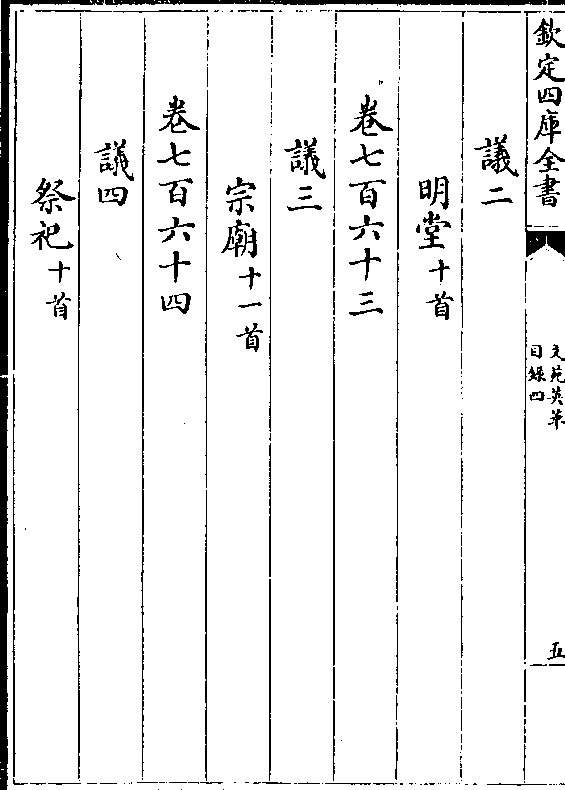 欽定四庫全書
文苑英華
目錄四
五
議二
明堂十首
卷七百六十三
議三
宗廟十一首
卷七百六十四
議四
祭祀十首